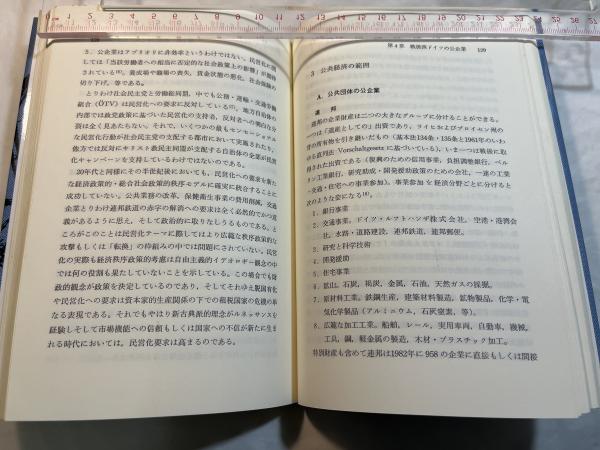 5. 公企業はアプリオリに非効率というわけではない。民営化に関
しては「当該労働者への相当に否定的な社会政策上の影響」が期待
されている。養成場や職場の喪失，賃金状態の悪化，社会保険の
切り下げ，等である。
とりわけ社会民主党と労働組合同盟，中でも公務・運輸・交通労働
組合（ÖTV）は民営化への要求に反対している。地方自治体の
内部では政党政策に基づいた民営化の支持者，反対者への明白な分
割は全く見あたらない。それで，いくつかの最もセンセーショナル
な民営化行動が社会民主党の支配する都市において実施されたり，
他方では反対にキリスト教民主同盟が支配する自治体の全部が民営
化キャンペーンを支持しているわけではないのである。
20年代と同様にその半世紀後においても，民営化への要求を新た
な経済政策的・総合社会政策的秩序モデルに確実に統合することに
成功していない。公共業務の改革，保健衛生事業の費用削減，交通
企業とりわけ連邦鉄道の赤字の解消への要求は全く必然的でかつ意
義があるように思え，そして政治的に取りなしうるものである。と
ころがこのことは民営化テーマに際してはより広範な秩序政策的な
攻撃もしくは「転換」の枠組みの中では問題にされていない。民営
化の実際も経済秩序政策的考慮は自由主義的イデオロギー観念の中
では何の役割も果たしていないことを示している。この場合でも財
政的観念が政策を決定しているのであり，そしてそれゆえ脱国有化
や民営化への要求は資本家的生産関係の下での租税国家の危機の単
なる表現である。それでもやはり新古典派的理念がルネッサンスを
経験しそして市場機能への信頼もしくは国家への不信が新たに生き
れる時代においては，民営化要求は高まるのである。
第4章 戦後西ドイツの公企業 129
3 公共経済の範囲
A. 公共団体の公企業
連邦
連邦の企業財産は二つの大きなグループに分けることができる。
一つは「遺産としての」出資であり，ライヒおよびプロイセン州の
昔の所有物を引き継いだもの（基本法134条・135条と1961年のいわ
ゆる直列法 Vorschaltgesetz に基づいている），いま一つは戦後に取
得された出資である（復興のための信用事業，負担調整銀行，ベル
リン工業銀行，研究助成・開発援助政策のための会社，一連の工業
・交通・住宅への事業参加）。事業参加を経済分野ごとに分けると
次のような姿になる。
1. 銀行事業
2. 交通事業，ドイツ・ルフトハンザ株式会社，空港・港湾会
社，水路・道路建設，連邦鉄道，連邦郵便。
3. 研究と科学技術
4. 開発援助
5. 住宅事業
6. 鉱山，石炭，褐炭，金属，石油，天然ガスの採掘。
7. 原材料工業。鉄鋼生産，建築材料製造，鉱物製品，化学・電
気化学製品（アルミニウム，石灰窒素，等）。
8. 広範な加工工業。船舶，レール，実用車両，自動車，機械，
工具，鋼，軽金属の製造，木材・プラスチック加工。
特別財産も含めて連邦は1982年に 958 の企業に直接もしくは間接